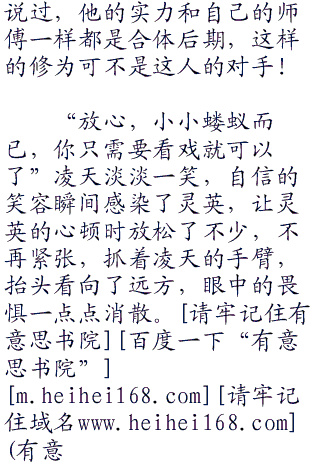 说过，他的实力和自己的师
傅一样都是合体后期，这样
的修为可不是这人的对手！
“放心，小小蝼蚁而
已，你只需要看戏就可以
了”凌天淡淡一笑，自信的
笑容瞬间感染了灵英，让灵
英的心顿时放松了不少，不
再紧张，抓着凌天的手臂，
抬头看向了远方，眼中的畏
惧一点点消散。[请牢记住有
意思书院][百度一下“有意
思书院”]
[m.heihei168.com][请牢记
住域名www.heihei168.com]
(有意